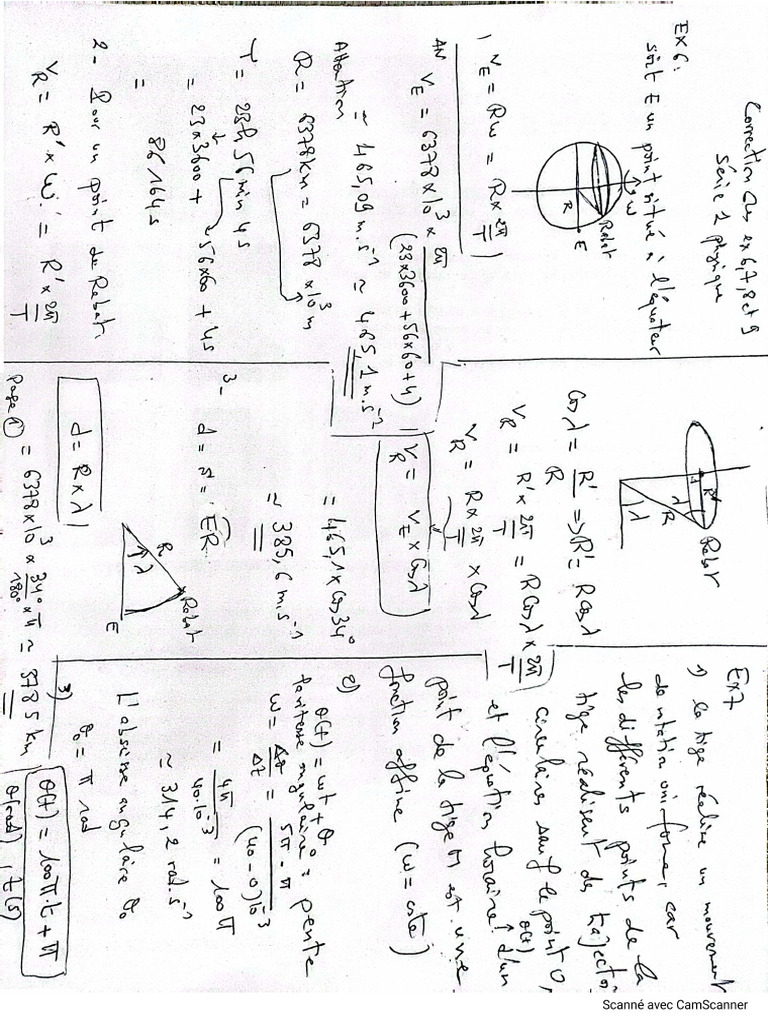 Correction des ex 6, 7, 8 et 9
série 1 physique
EX6:
soit E un point situé à l'équateur
ω
Rabat
R
E
1) V_E = Rω = R × 2π/T
AN V_E = 6378×10³ × 2π/(23×3600+56×60+4)
≈ 465,09 m.s⁻¹ ≈ 465,1 m.s⁻¹
Attention
R = 6378 km = 6378×10³ m
T = 23h 56min 4s
= 23×3600 + 56×60 + 4s
= 86164s
2- Pour un point de Rabat.
V_R = R' × ω = R' × 2π/T
R'
λ
R
λ
Rabat
cos λ = R'/R => R' = R cos λ
V_R = R' × 2π/T = R cos λ × 2π/T
V_R = R × 2π/T × cos λ
V_R = V_E × cos λ
= 465,1 × cos 34°
≈ 385,6 m.s⁻¹
3-
R
λ
Rabat
E
d = R × λ
= 6378×10³ × 34° × π/180° ≈ 3785 km
Page ①
Ex7
1) la tige réalise un mouvement
de rotation uniforme, car
les différents points de la
tige réalisent des trajectoi
circulaires sauf le point O,
et l'équation horaire θ(t) d'un
point de la tige M est une
fonction affine (ω = cste)
2) θ(t) = ωt + θ₀
la vitesse angulaire = pente
ω = Δθ/Δt = 5π - π/(40-0)10⁻³
= 4π/40.10⁻³ = 100π
≈ 314,2 rad.s⁻¹
L'abscisse angulaire θ₀
θ₀ = π rad
3) θ(t) = 100π.t + π
θ(rad), t(s)
Scanné avec CamScanner